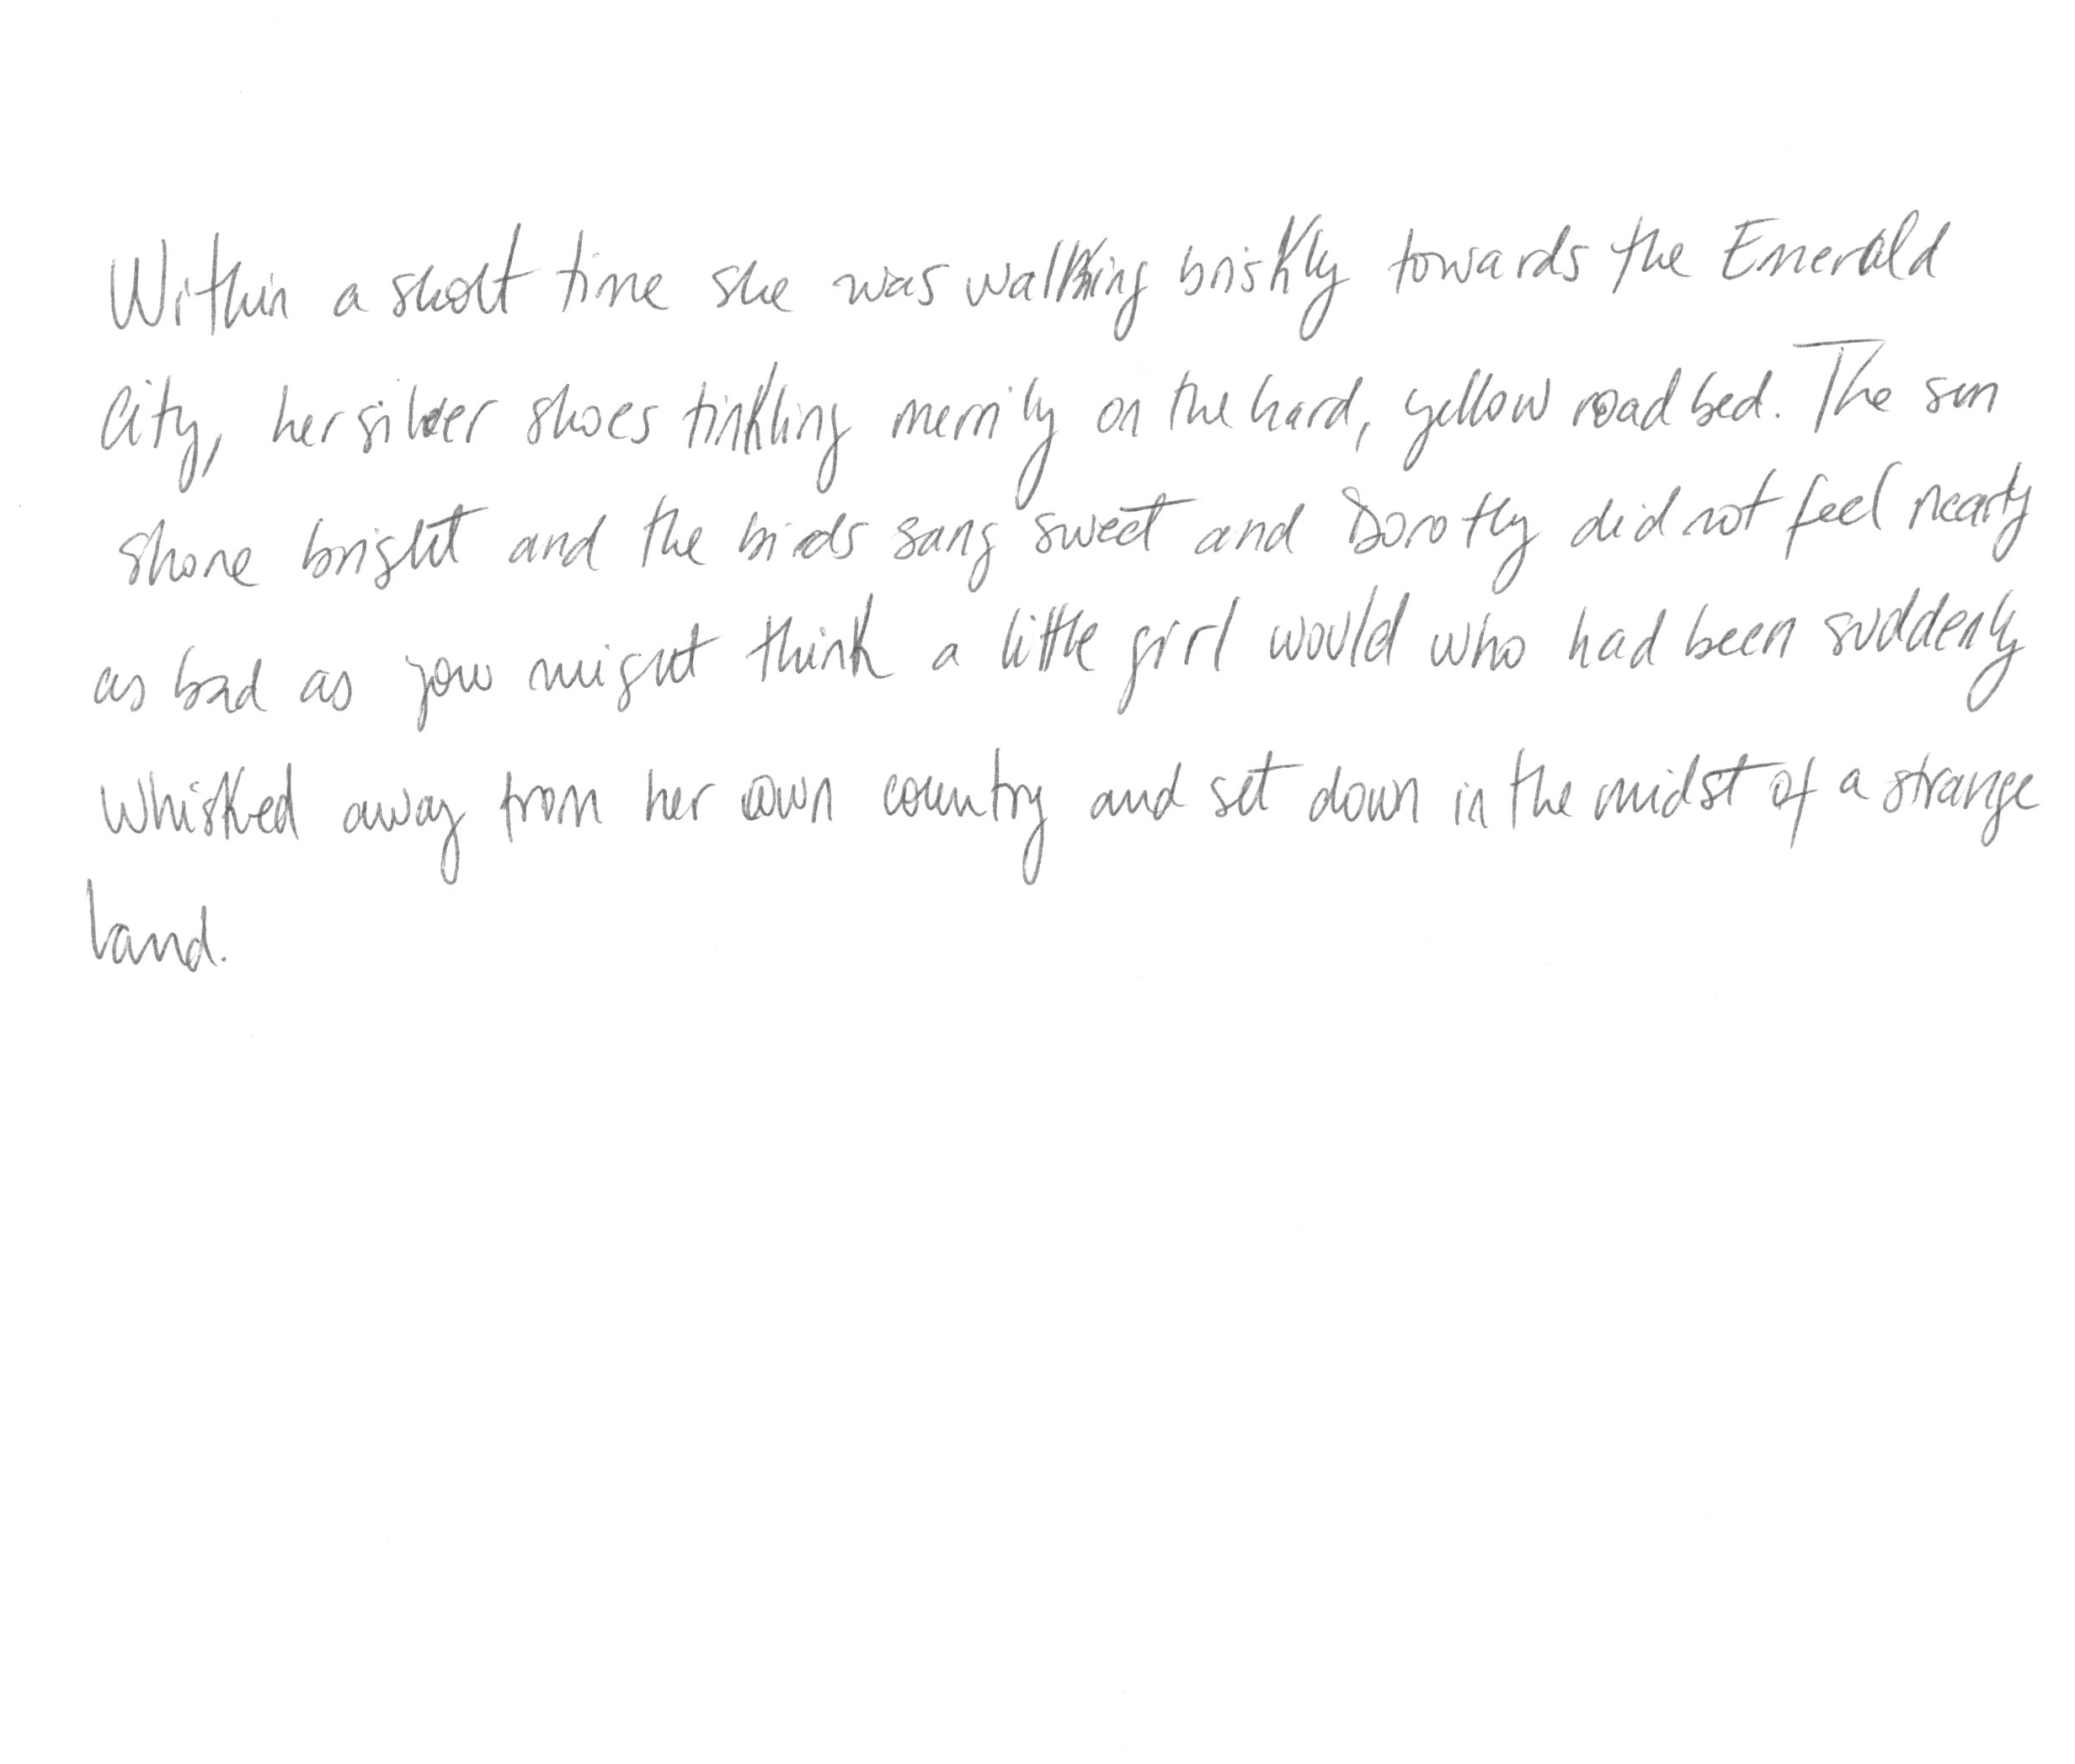 Within a short time she was walking briskly towards the Emerald
City, her silver shoes tinkling merrily on the hard, yellow road bed. The sun
shone bright and the birds sang sweet and Dorothy did not feel nearly
as bad as you might think a little girl would who had been suddenly
whisked away from her own country and set down in the midst of a strange
land.